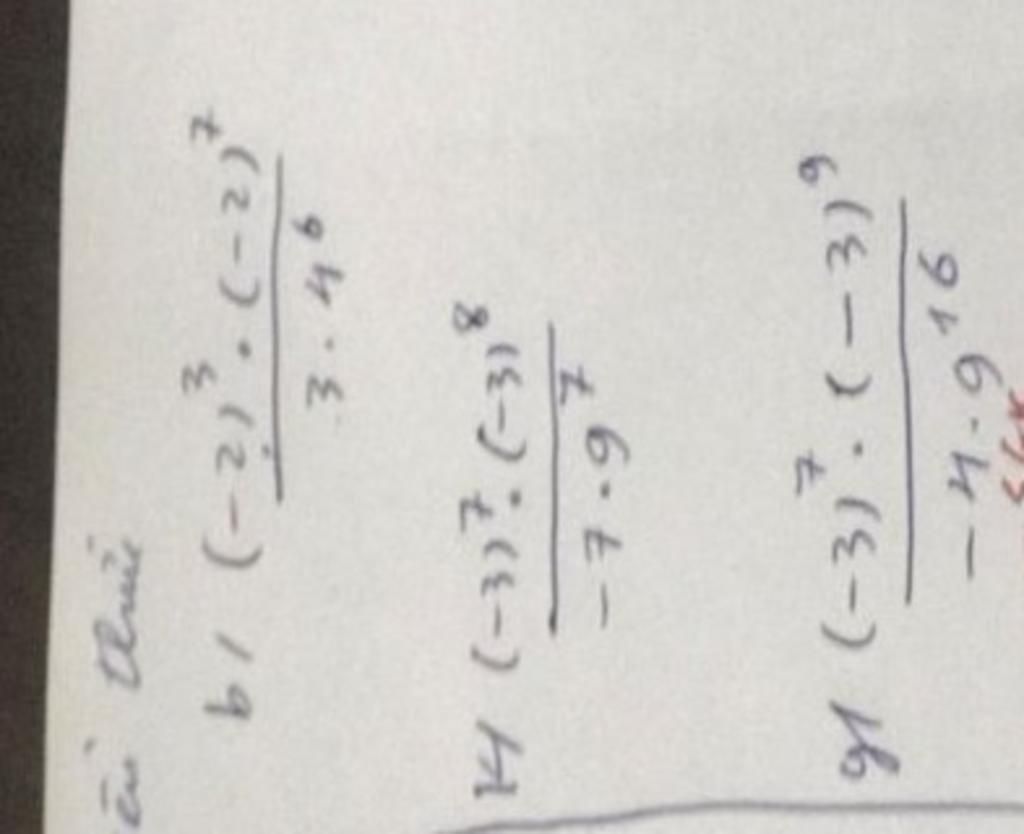 thức
b/ (-2)³.(-2)⁷
3.4⁶
(-3)⁷.(-3)⁸
-7.9⁷
g/ (-3)⁷.(-3)⁹
-4.9¹⁶